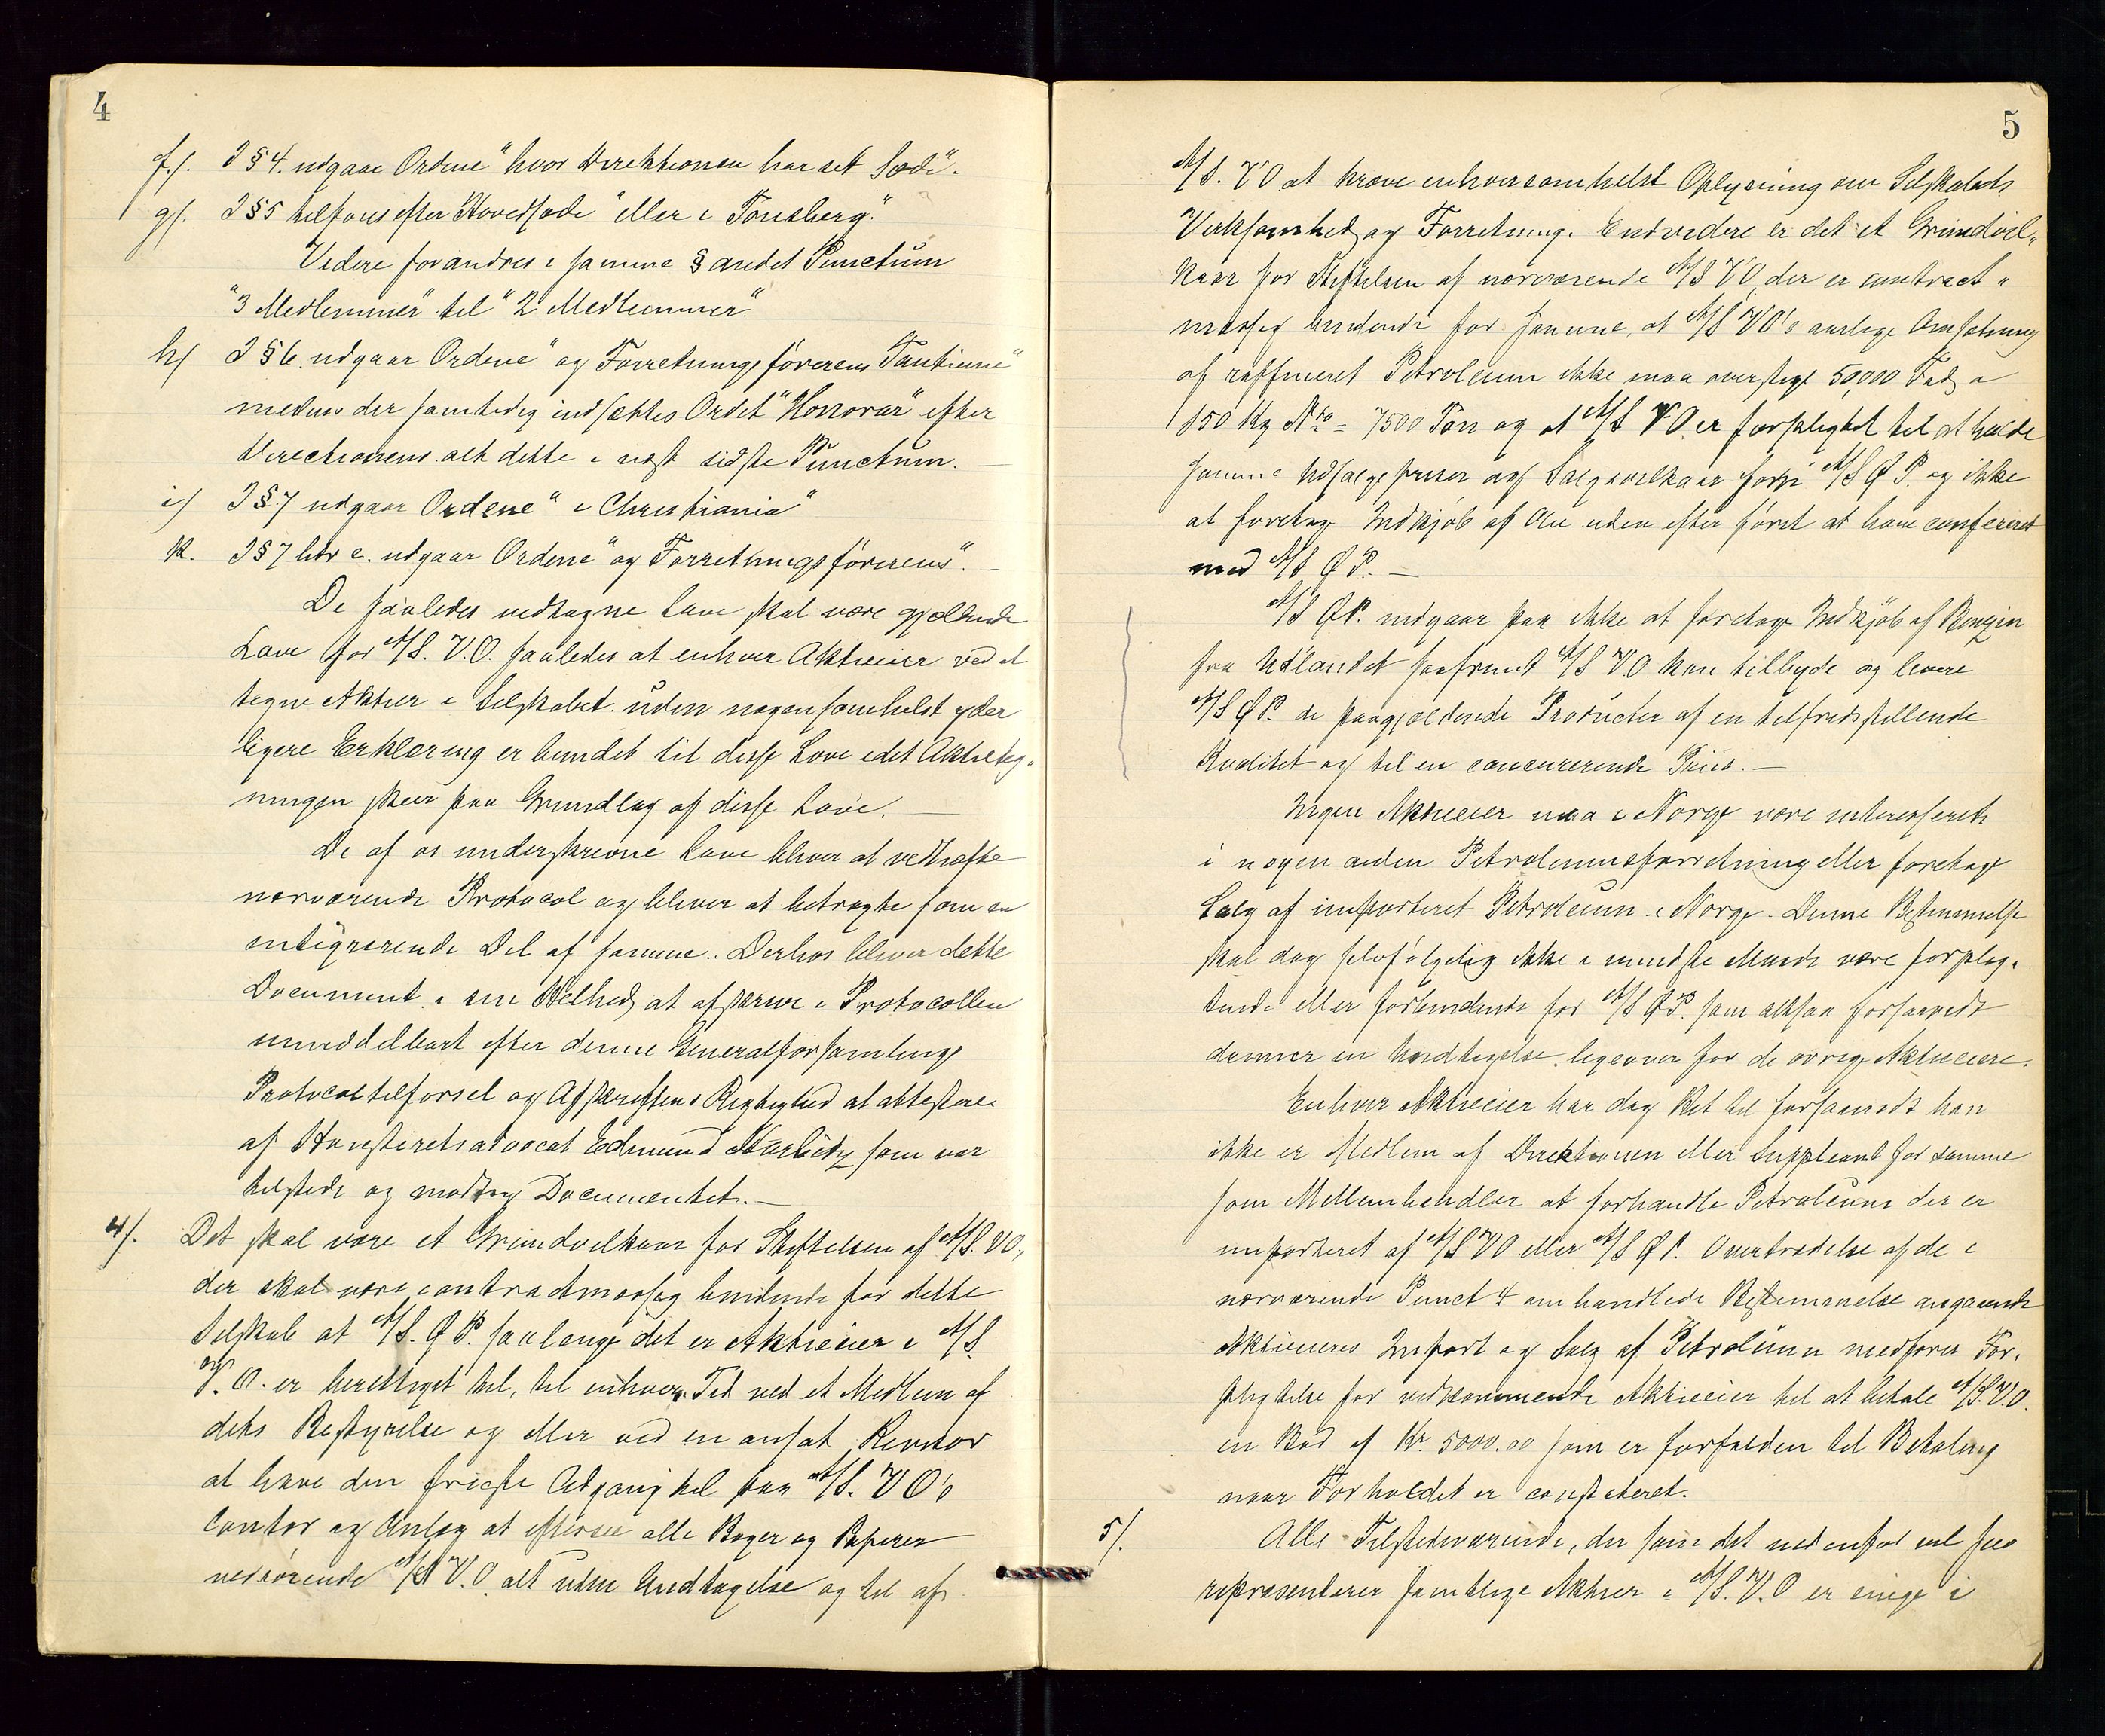 4
f/. I § 4. udgaar Ordene "hvor Direktionen har sit Sæde".
g/. I § 5 tilföies efter Hovedsæde "eller i Tönsberg."
Videre forandres i samme § andet Punctum
"3 Medlemmer" til "2 Medlemmer".
h/ I § 6. udgaar Ordene "og Forretningsförerens Tantieme"
medens der samtidig indsættes Ordet "Honorar" efter
Direktionens alt dette i næst sidste Punctum. —
i/ I § 7 udgaar Ordene "i Christiania"
k. I § 7 litr c. udgaar Ordene "og Forretningsförerens". —
De saaledes vedtagne Love skal være gjældende
Love for A/S. V.O. saaledes at enhver Aktieeier ved at
tegne Aktier i Selskabet uden nogensomhelst yder
ligere Erklæring er bundet til disse Love idet Aktieteg-
ningen skeer paa Grundlag af disse Love. —
De af os underskrevne Love bliver at vedhæfte
nærværende Protocol og bliver at betragte som en
integrerende Del af samme. Derhos bliver dette
Document i sin Helhed at afskrive i Protocollen
umiddelbart efter denne Generalforsamlings
Protocoltilförsel og Afskriftens Rigtighed at attestere
af Høiesteretsadvocat Edmund Harbitz som var
tilstede og modtog Documentet. —
4/. Det skal være et Grundvilkaar for Stiftelsen af A/S. VO.,
der skal være contractmæssig bindende for dette
Selskab at A/S. Ø P. saalenge det er Aktieeier i A/S.
V. O. er berettiget til, til enhver Tid ved et Medlem af
dets Bestyrelse og eller ved en ansat Revisor
at have den frieste Adgang til paa A/S. V O's
Contor og Anlæg at eftersee alle Bøger og Papirer
vedrörende A/S V.O. alt uden Undtagelse og til af
5
A/S. V O at kræve enhversomhelst Oplysning om Selskabets
Virksomhed og Forretning. Endvidere er det et Grundvil-
kaar for Stiftelsen af nærværende A/S V O, der er contract-
mæssig bindende for samme, at A/S V O's aarlige Omsætning
af raffineret Petroleum ikke maa overstige 50,000 Fad a
150 Kg Nto = 7500 Ton og at A/S V O. er forpligtet til at holde
samme Udsalgspriser og Salgsvilkaar som A/S Ø P. og ikke
at foretage Indkjöb af Olie uden efter först at have confereret
med A/S Ø P. —
A/S Ø P. indgaar paa ikke at foretage Indkjöb af Benzin
fra Udlandet saafremt A/S V.O. kan tilbyde og levere
A/S Ø P. de paagjældende Producter af en tilfredsstillende
Kvalitet og til en concurerende Priis. —
Ingen Aktieeier maa i Norge være interesseret
i nogen anden Petroleumsforretning eller foretage
Salg af importeret Petroleum i Norge. Denne Bestemmelse
skal dog selvfölgelig ikke i mindste Maade være forplig-
tende eller forbindende for A/S Ø P. som altsaa forsaavidt
danner en Undtagelse ligeover for de övrige Aktieeiere.
Enhver Aktieeier har dog Ret til forsaavidt han
ikke er Medlem af Direktionen eller Suppleant for samme
som Mellemhandler at forhandle Petroleum der er
importeret af A/S V O eller A/S Ø P. Overtrædelse af de i
nærværende Punct 4 omhandlede Bestemmelse angaaende
Aktieeieres Import og Salg af Petroleum medförer For-
pligtelse for vedkommende Aktieeier til at betale A/S. V.O.
en Bod af Kr. 5000.00 som er forfalden til Betaling
naar Forholdet er constateret.
5/. Alle Tilstedeværende, der som det nedenfor vil sees
repræsenterer samtlige Aktier i A/S. V. O er enige i